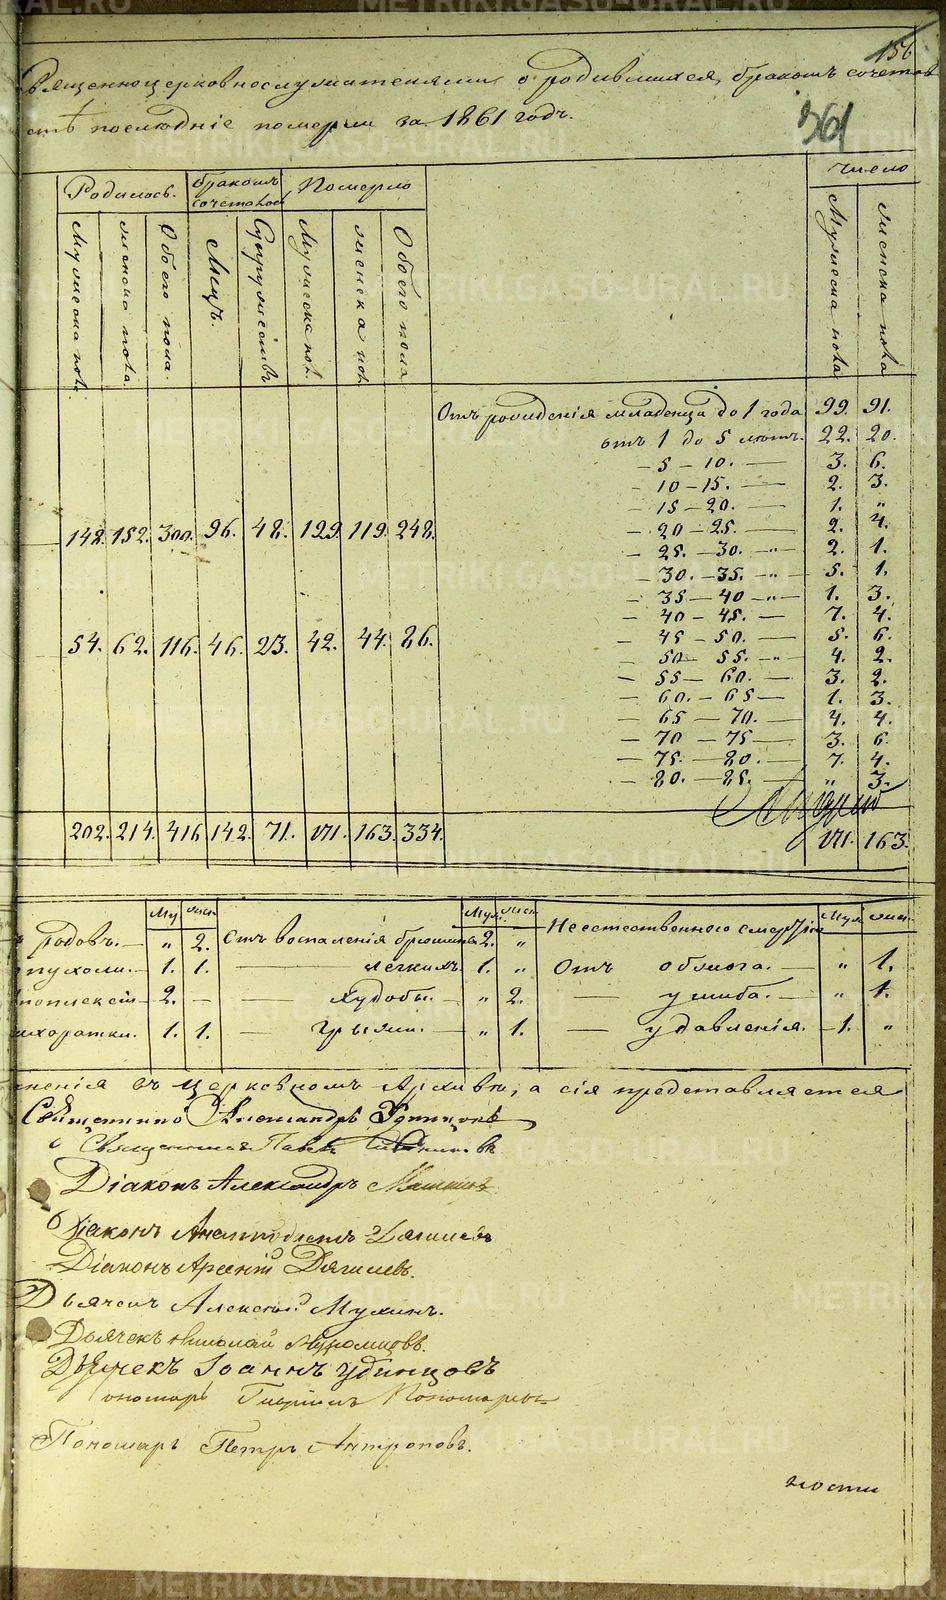 156
священноцерковнослужителями о родившихся, бракомъ сочетав
последніе померли за 1861 годъ.
361
Родилось. бракомъ сочеталось Померло число
Мужеска пол. женска пола. Обоего пола. Лицъ. Супружествъ Мужеска пол. женска пол. Обоего пола Мужеска пола женска пола
Отъ рожденія младенца до 1 года 99. 91.
отъ 1 до 5 летъ. 22. 20.
— 5 — 10. — 3. 6.
— 10 — 15. — 2. 3.
— 15 — 20. — 1. "
— 20 — 25. — 2. 4.
148. 152. 300. 96. 48. 129. 119. 248.
— 25. — 30. — " — 2. 1.
— 30. — 35. — " — 5. 1.
— 35 — 40 — " — 1. 3.
— 40 — 45. — 7. 4.
— 45 — 50. — 5. 6.
54. 62. 116. 46. 23. 42. 44. 86.
— 50 — 55. — " — 4. 2.
— 55 — 60. — 3. 2.
— 60. — 65 — 1. 3.
— 65 — 70. — 4. 4.
— 70 — 75 — 3. 6.
— 75. — 80. — 7. 4.
— 80. — 85. — " 3.
202. 214. 416 142. 71. 171. 163. 334. 171. 163.
Му жен. Муж. жен Муж жен.
родовъ. — " 2. Отъ воспаленія брюшины 2. " Неестественного смертію
пухоли. — 1. 1. — легкихъ 1. " Отъ обжога. — " 1.
поплексіи — 2. — — худобы. — " 2. — ушиба. — " 1.
ихоратки. 1. 1. — грыжи. — " 1. — удавленія. — 1. "
ненія въ церковномъ Архиве, а сія представляется
Священникъ Александръ Удинцовъ
Священникъ Павелъ
Діаконъ Александръ
Діаконъ
Діаконъ Арсеній Дягилевъ.
Дьячекъ Алексей Мухинъ.
Дьячекъ Николай
Дьячекъ Іоаннъ Удинцовъ
ономарь Гавріилъ Пономаревъ
Пономарь Петръ Антроповъ.
ности
METRIKI.GASO-URAL.RU